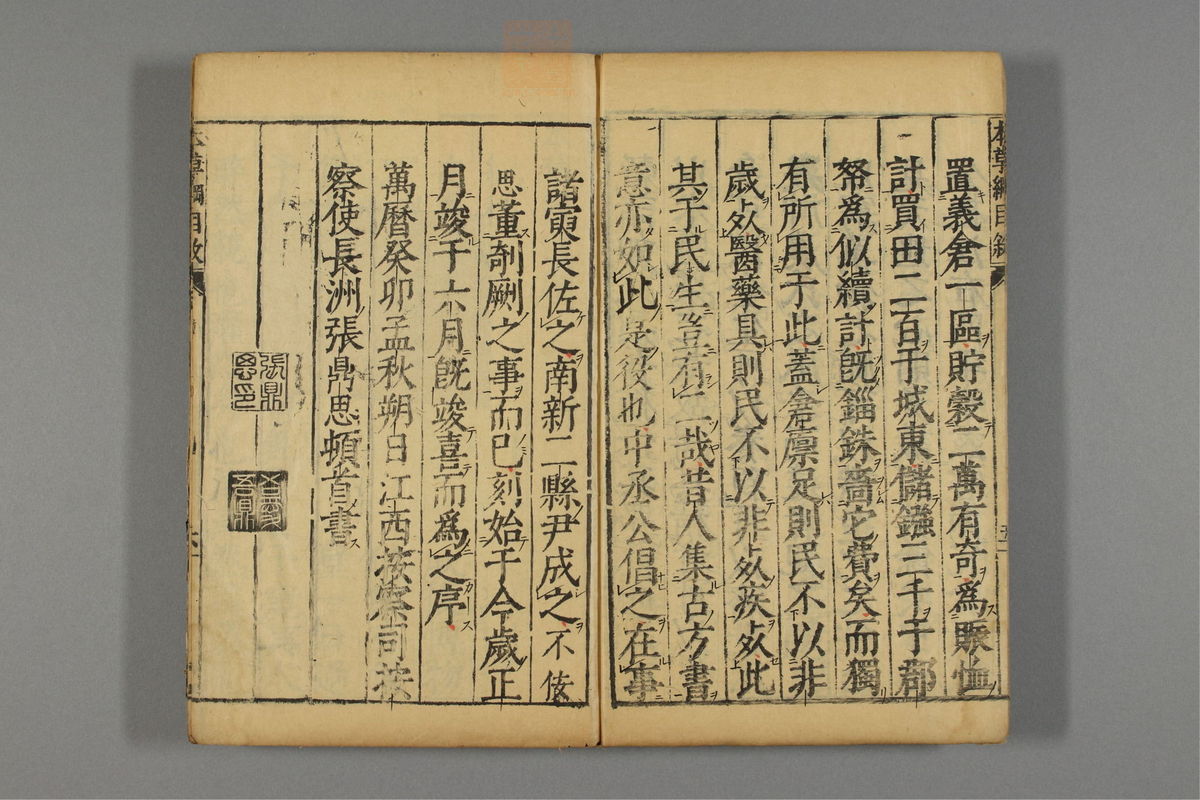 置義倉一區貯穀二萬有奇為賑恤
計買田二百于城東儲鏹三千于郡
帑為似續計旣錙銖嗇它費矣而獨
有所用于此蓋倉廩足則民不以非
歲死醫藥具則民不以非死疾死此
其于民生豈有二哉昔人集古方書
意亦如此是役也中丞公倡之在事
諸寅長佐之南新二縣尹成之不佞
思董剞劂之事而已刻始于今歲正
月竣于六月旣竣喜而為之序
萬曆癸卯孟秋朔日江西按察司按
察使長洲張鼎思頓首書
張鼎思印
本草綱目敘